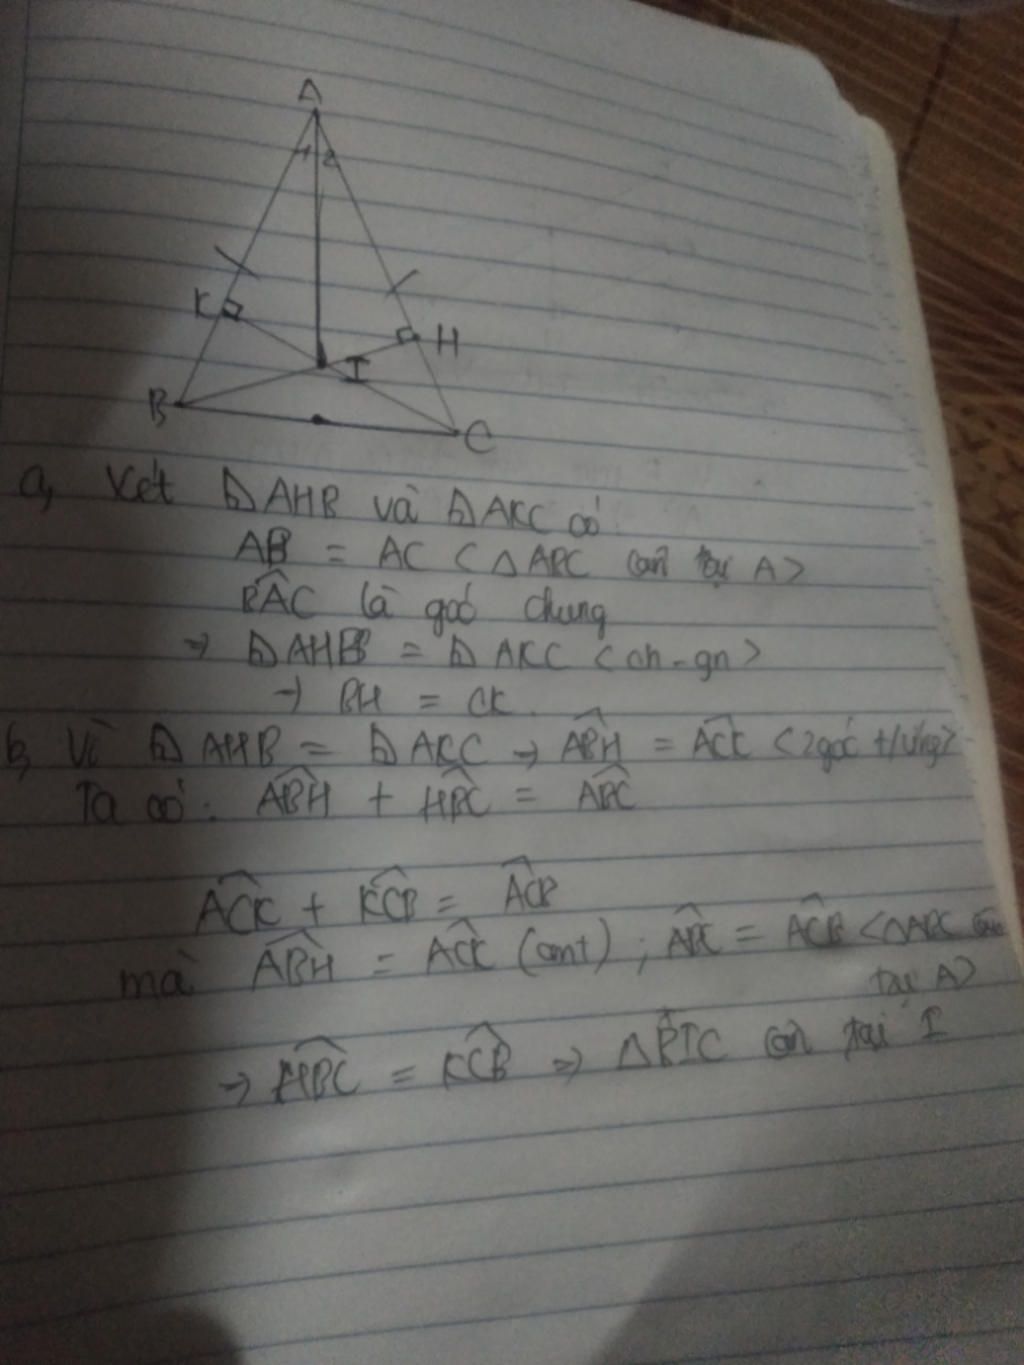 A
1 2
K
H
I
B
C
a, Xét ⊿AHB và ⊿AKC có
AB = AC < △ABC cân tại A >
B̂AC là góc chung
→ ⊿AHB = ⊿AKC < ch - gn >
→ BH = CK.
b, Vì ⊿AHB = ⊿AKC → ÂBH = ÂCK < 2 góc t/ứng >
Ta có: ÂBH + ĤBC = ÂBC
ÂCK + K̂CB = ÂCB
mà ÂBH = ÂCK (cmt) ; ÂBC = ÂCB < △ABC cân
tại A >
→ ĤBC = K̂CB => △BIC cân tại I